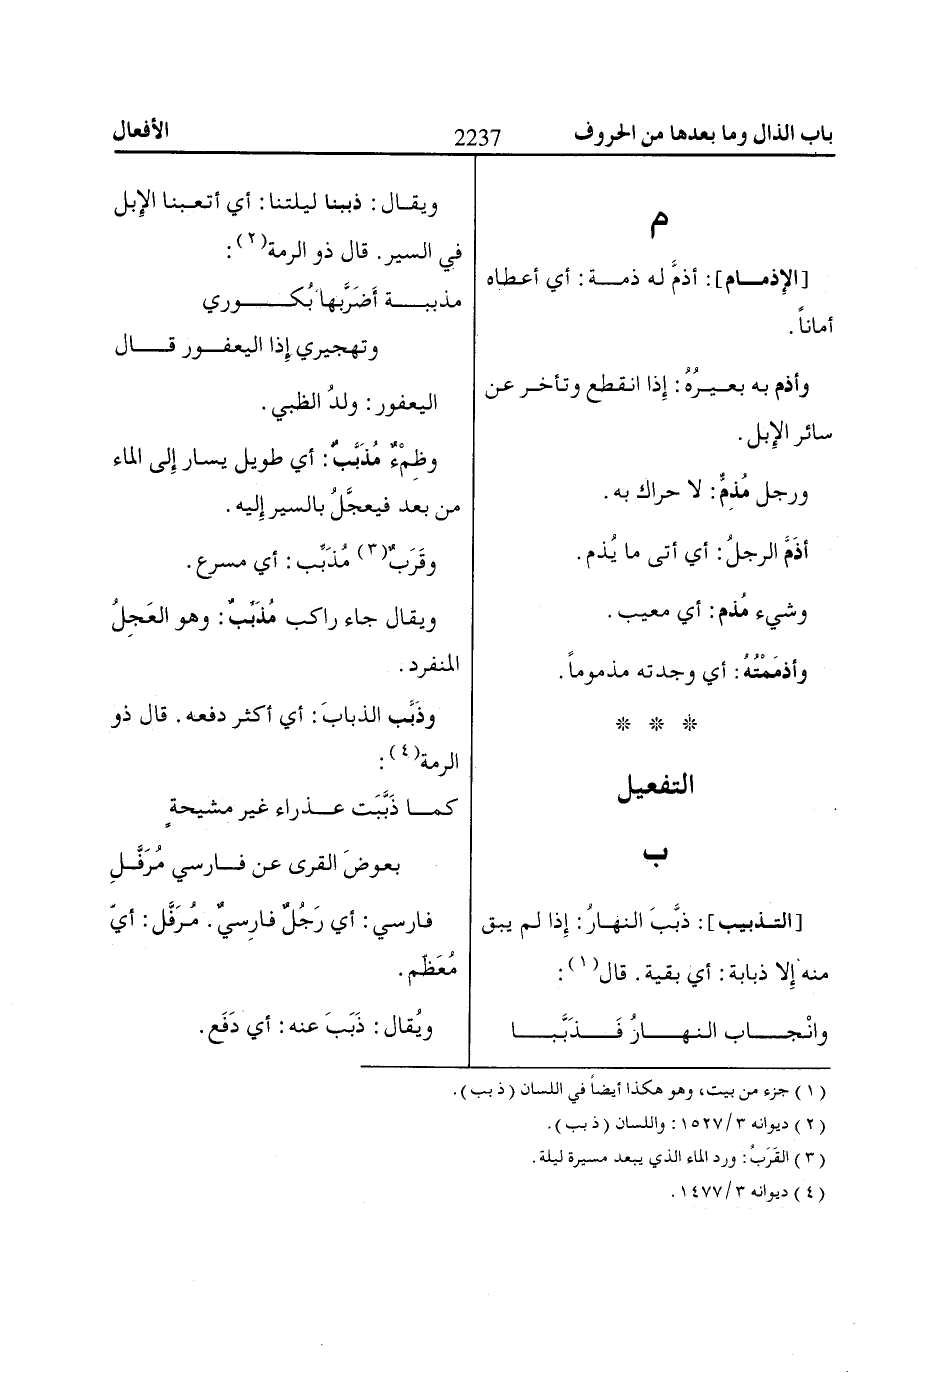 باب الذال وما بعدها من الحروف 2237 الأفعال
م
[الإذمام]: أذمَّ له ذمة: أي أعطاه
أماناً.
وأذم به بعيرُهُ: إذا انقطع وتأخر عن
سائر الإبل.
ورجل مُذمٌّ: لا حراك به.
أذَمَّ الرجلُ: أي أتى ما يُذم.
وشيء مُذم: أي معيب.
وأذمَمْتُهُ: أي وجدته مذموماً.
* * *
التفعيل
ب
[التذبيب]: ذبَّبَ النهارُ: إذا لم يبق
منه إلا ذبابة: أي بقية. قال(١):
وانْجاب النهارُ فَذَبَّبا
ويقال: ذببنا ليلتنا: أي أتعبنا الإبل
في السير. قال ذو الرمة(٢):
مذببة أَضَرَّبها بُكوري
وتهجيري إذا اليعفور قال
اليعفور: ولدُ الظبي.
وظِمْءٌ مُذَبَّبٌ: أي طويل يسار إلى الماء
من بعد فيعجَّلُ بالسير إليه.
وقَرَبٌ(٣) مُذَبِّب: أي مسرع.
ويقال جاء راكب مُذَبِّبٌ: وهو العَجِلُ
المنفرد.
وذَبَّب الذبابَ: أي أكثر دفعه. قال ذو
الرمة(٤):
كما ذَبَّبَت عذراء غير مشيحةٍ
بعوضَ القرى عن فارسي مُرَفَّلِ
فارسي: أي رَجُلٌ فارِسيٌ. مُرَفَّل: أيّ
مُعَظّم.
ويُقال: ذَبَبَ عنه: أي دَفَع.
(١) جزء من بيت، وهو هكذا أيضاً في اللسان (ذ بب).
(٢) ديوانه ١٥٢٧/٣: واللسان (ذ بب).
(٣) القَرَبُ: ورد الماء الذي يبعد مسيرة ليلة.
(٤) ديوانه ١٤٧٧/٣.